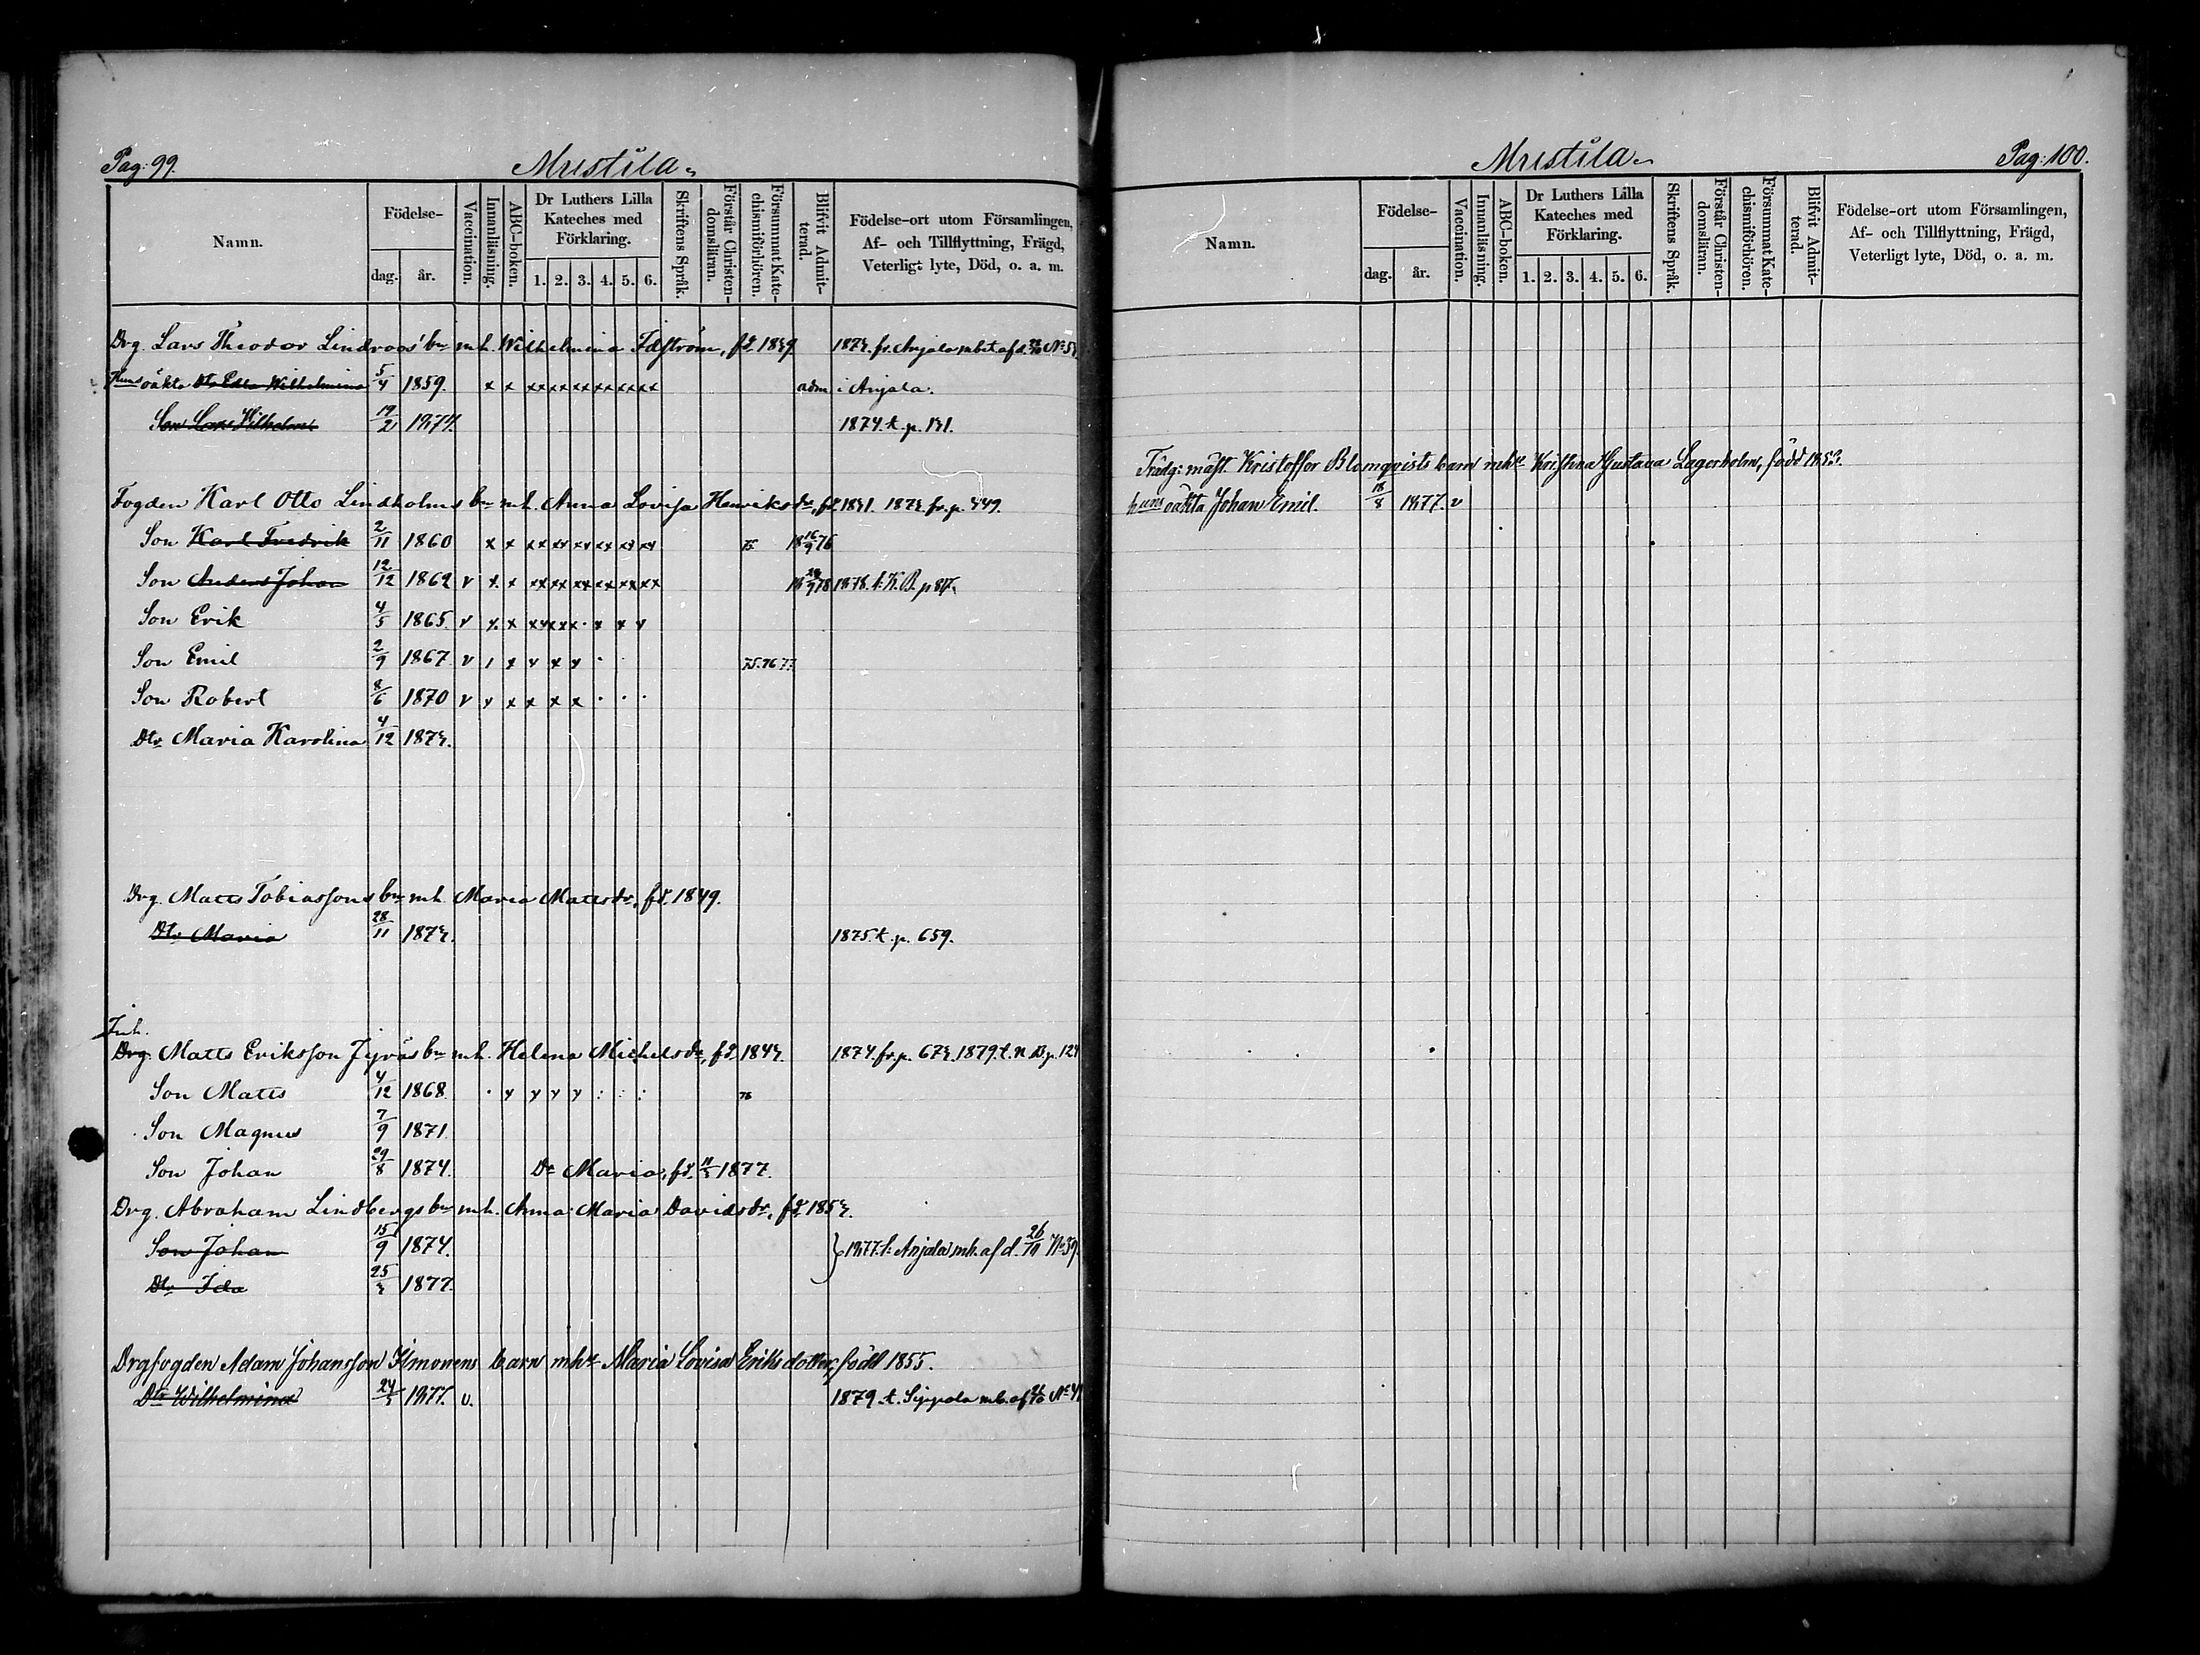 Pag: 99.
Mustila.
Namn.
Födelse-
dag.
år.
Vaccination.
Innanläsning.
ABC-boken.
Dr Luthers Lilla
Kateches med
Förklaring.
1. 2. 3. 4. 5. 6.
Skriftens Språk.
Förstår Christen-
domsläran.
Försummat Kate-
chismiförhören.
Blifvit Admit-
terad.
Födelse-ort utom Församlingen,
Af- och Tillflyttning, Frägd,
Veterligt lyte, Död, o. a. m.
Drg. Lars Theodor Lindroos' bn m.h. Wilhelmina Idström, fd. 1839. fr. Anjala
Hans oäkta Dtr Edla Wilhelmina 5/4 1859. x x xx xx xx xx xx xx adm i Anjala.
Son Lars Wilhelm 19/2 1874. 1874. t. p. 131.
Fogden Karl Otto Lindholms bn m.h. Anna Lovisa Henriksdr, fd. 1831. 1873. fr. p. 449.
Son Karl Fredrik 2/11 1860 x x xx xx xx xx xx xx 75. 18 16/9 76
Son Anders Johan 12/12 1862 v x x xx xx xx xx xx xx 1878. t. K. B. p 817.
Son Erik 4/5 1865. v x x xx xx x x x
Son Emil 2/9 1867. v x 75. 76. 77.
Son Robert 8/6 1870 v x x x x x
Dtr Maria Karolina 4/12 1873.
Drg. Matts Tobiassons bn m.h. Maria Mattsdr, fd. 1849.
Dtr Maria 28/11 1873. 1875. t. p. 659.
Inh.
Drg. Matts Eriksson Jyräs bn m.h. Helena Michelsdr, fd. 1843. 1874. fr. p. 673. 1879. t. N. B. p. 124
Son Matts 4/12 1868. 76
Son Magnus 7/9 1871
Son Johan 29/8 1874. Dr Maria, fd. 11/3 1877.
Drg. Abraham Lindbergs bn m.h. Anna Maria Davidsdr, fd. 1853.
Son Johan 15/9 1874. } 1877. t. Anjala mb. af d. 26/10 No 39.
Dtr Ida 25/3 1877.
Drgfogden Adam Johansson Ilmonens barn mhu Maria Lovisa Eriksdotter, född 1855.
Dtr Wilhelmina 24/3 1877. v. 1879. t. Sippola mb. af No 4
Mustila.
Pag: 100.
Namn.
Födelse-
dag.
år.
Vaccination.
Innanläsning.
ABC-boken.
Dr Luthers Lilla
Kateches med
Förklaring.
1. 2. 3. 4. 5. 6.
Skriftens Språk.
Förstår Christen-
domsläran.
Försummat Kate-
chismiförhören.
Blifvit Admit-
terad.
Födelse-ort utom Församlingen,
Af- och Tillflyttning, Frägd,
Veterligt lyte, Död, o. a. m.
Trädg: mäst. Kristoffer Blomqvists barn mhu Kristina Gustava Lagerholm, född
hans oäkta Johan Emil. 1877. v